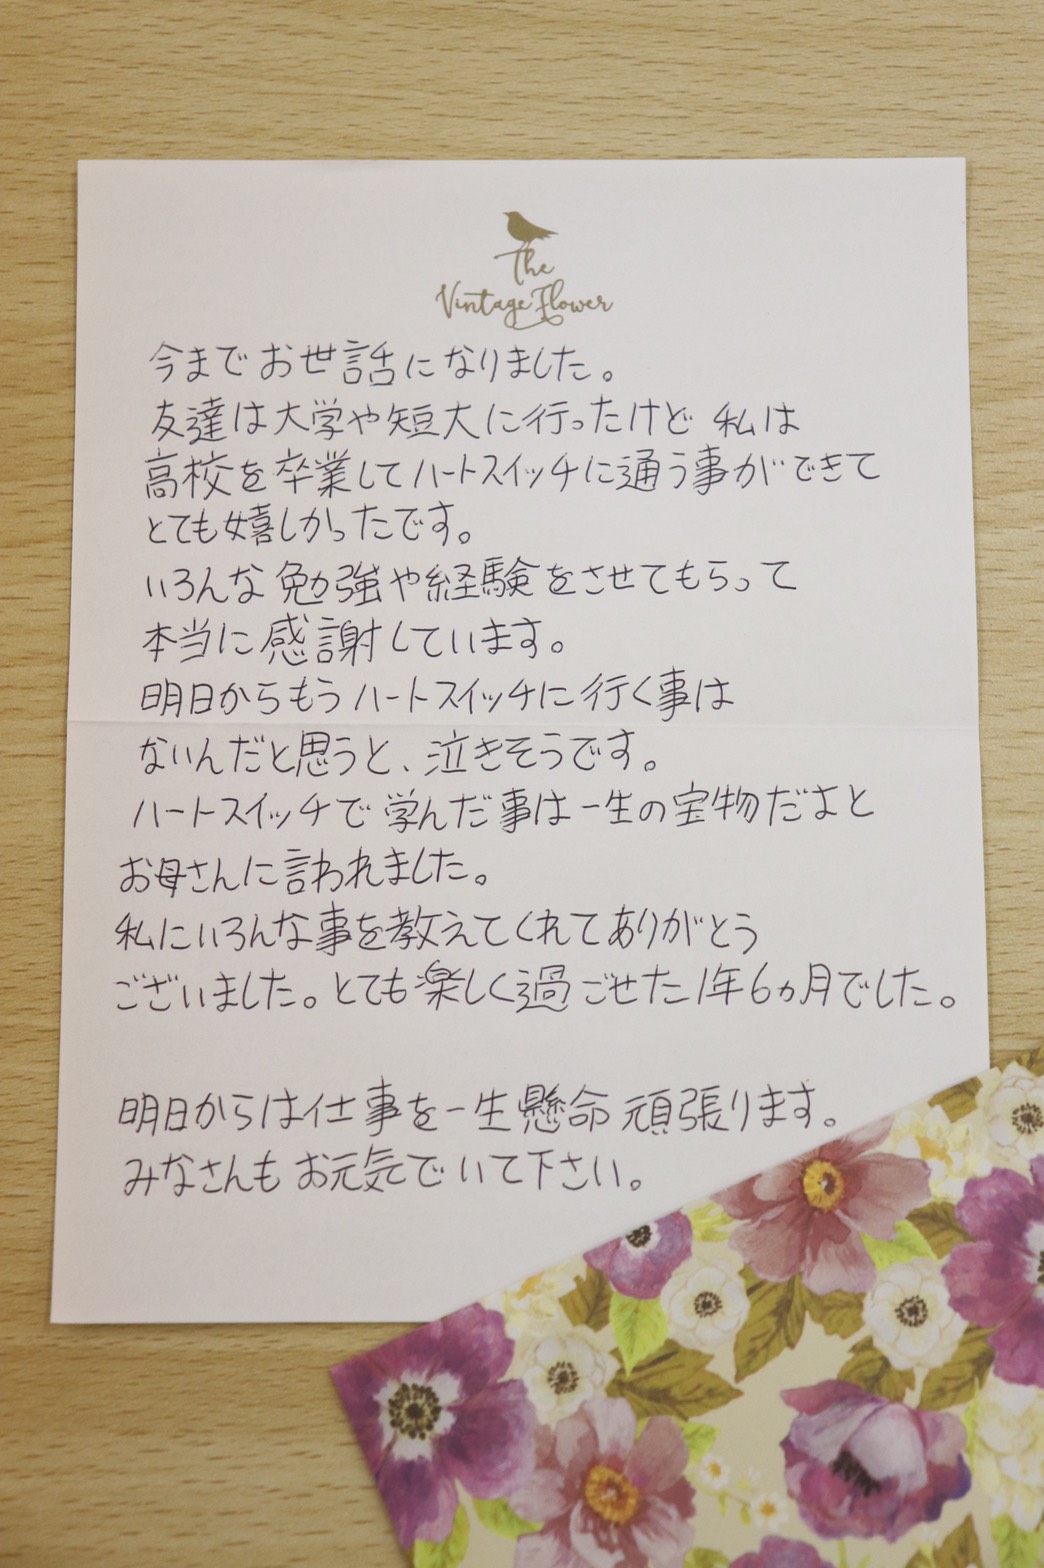 The
Vintage Flower
今までお世話になりました。
友達は大学や短大に行ったけど 私は
高校を卒業してハートスイッチに通う事ができて
とても嬉しかったです。
いろんな勉強や経験をさせてもらって
本当に感謝しています。
明日からもうハートスイッチに行く事は
ないんだと思うと、泣きそうです。
ハートスイッチで学んだ事は一生の宝物だよと
お母さんに言われました。
私にいろんな事を教えてくれてありがとう
ございました。とても楽しく過ごせた1年6ヵ月でした。
明日からは仕事を一生懸命頑張ります。
みなさんもお元気でいて下さい。